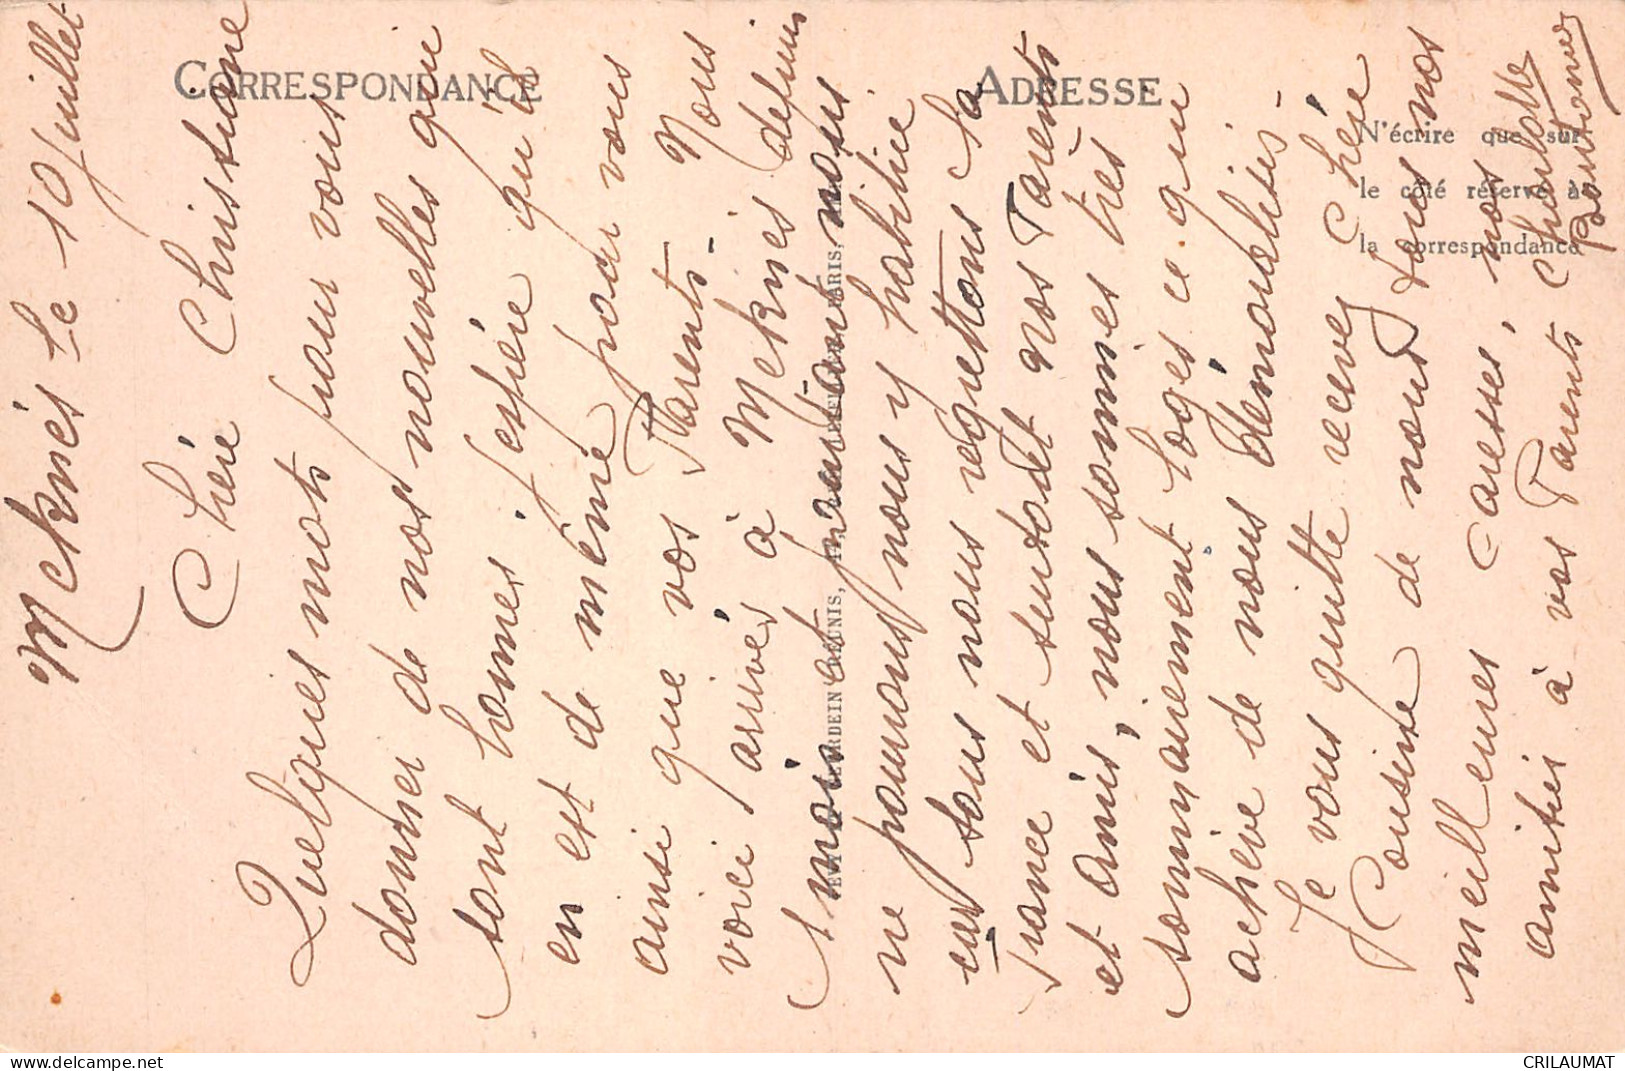 Meknés le 10 Juillet
Chére Christiane
Quelques mots pour vous
donner de nos nouvelles qui
sont bonnes. j'espére qu'il
en est de même pour vous
ainsi que vos Parents. Nous
voici, arrivés à Meknes depuis
1 mois et pourtant nous
ne pourrons nous y habituer
car tous nous regrettons la
France et surtout nos Parents
et Amis, nous sommes très
sommairement logés ce qui
achève de nous démoraliser.
Je vous quitte recevez Chére
Cousine de nous tous nos
meilleures caresses, nos
amitiés à vos Parents Charlotte
CORRESPONDANCE
ADRESSE
N'écrire que sur
le côté réservé à
la correspondance
CRILAUMAT